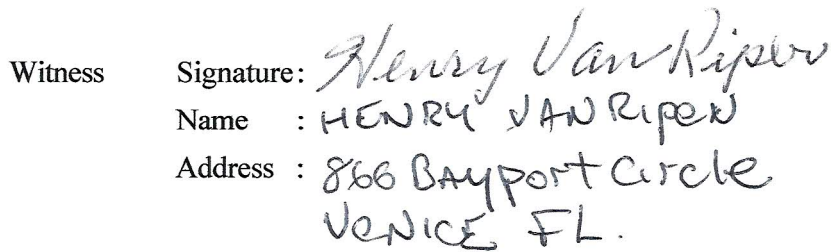 Witness Signature: Henry Van Riper
Name : HENRY VAN RipeN
Address : 866 BAyport Circle
VeNICE FL.